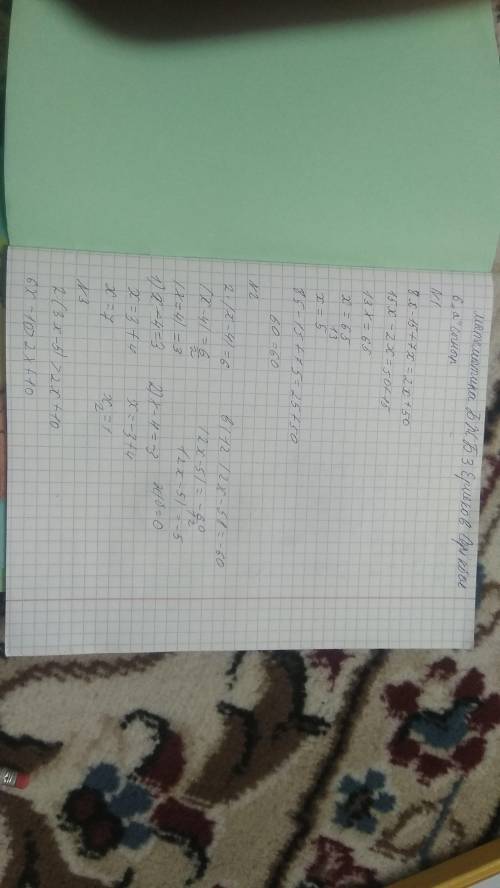 математика БЖБ3
6 а" сынып
N1
8x-15+7x=2x+50
15x-2x=50+15
13x=65
x=65/13
x=5
8·5-15+7·5=2·5+50
60=60
N2
2·|x-4|=6
|x-4|=6/2
|x-4|=3
1) x-4=3
x=3+4
x=7
2) x-4=-3
x=-3+4
x₂=1
б) 12·|2x-5|=-60
|2x-5|=-60/12
|2x-5|=-5
N3
2(3x-5)>2x+10
6x-10>2x+10